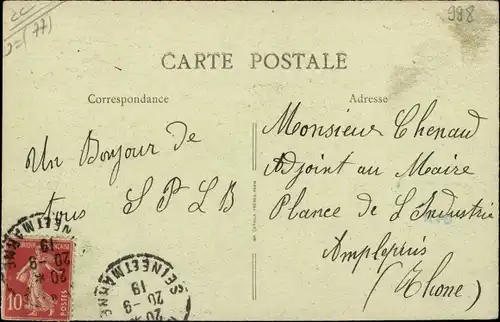 998
(77)
CARTE POSTALE
Correspondance
Adresse
Un Bonjour de
tous S P L B
Monsieur Chenaud
Adjoint au Maire
Plance de L'Industrie
Amplepuis
(Rhone)
SEINE ET MARNE
20 - 9
19
SEINE ET MARNE
20 - 9
19
10
POSTES